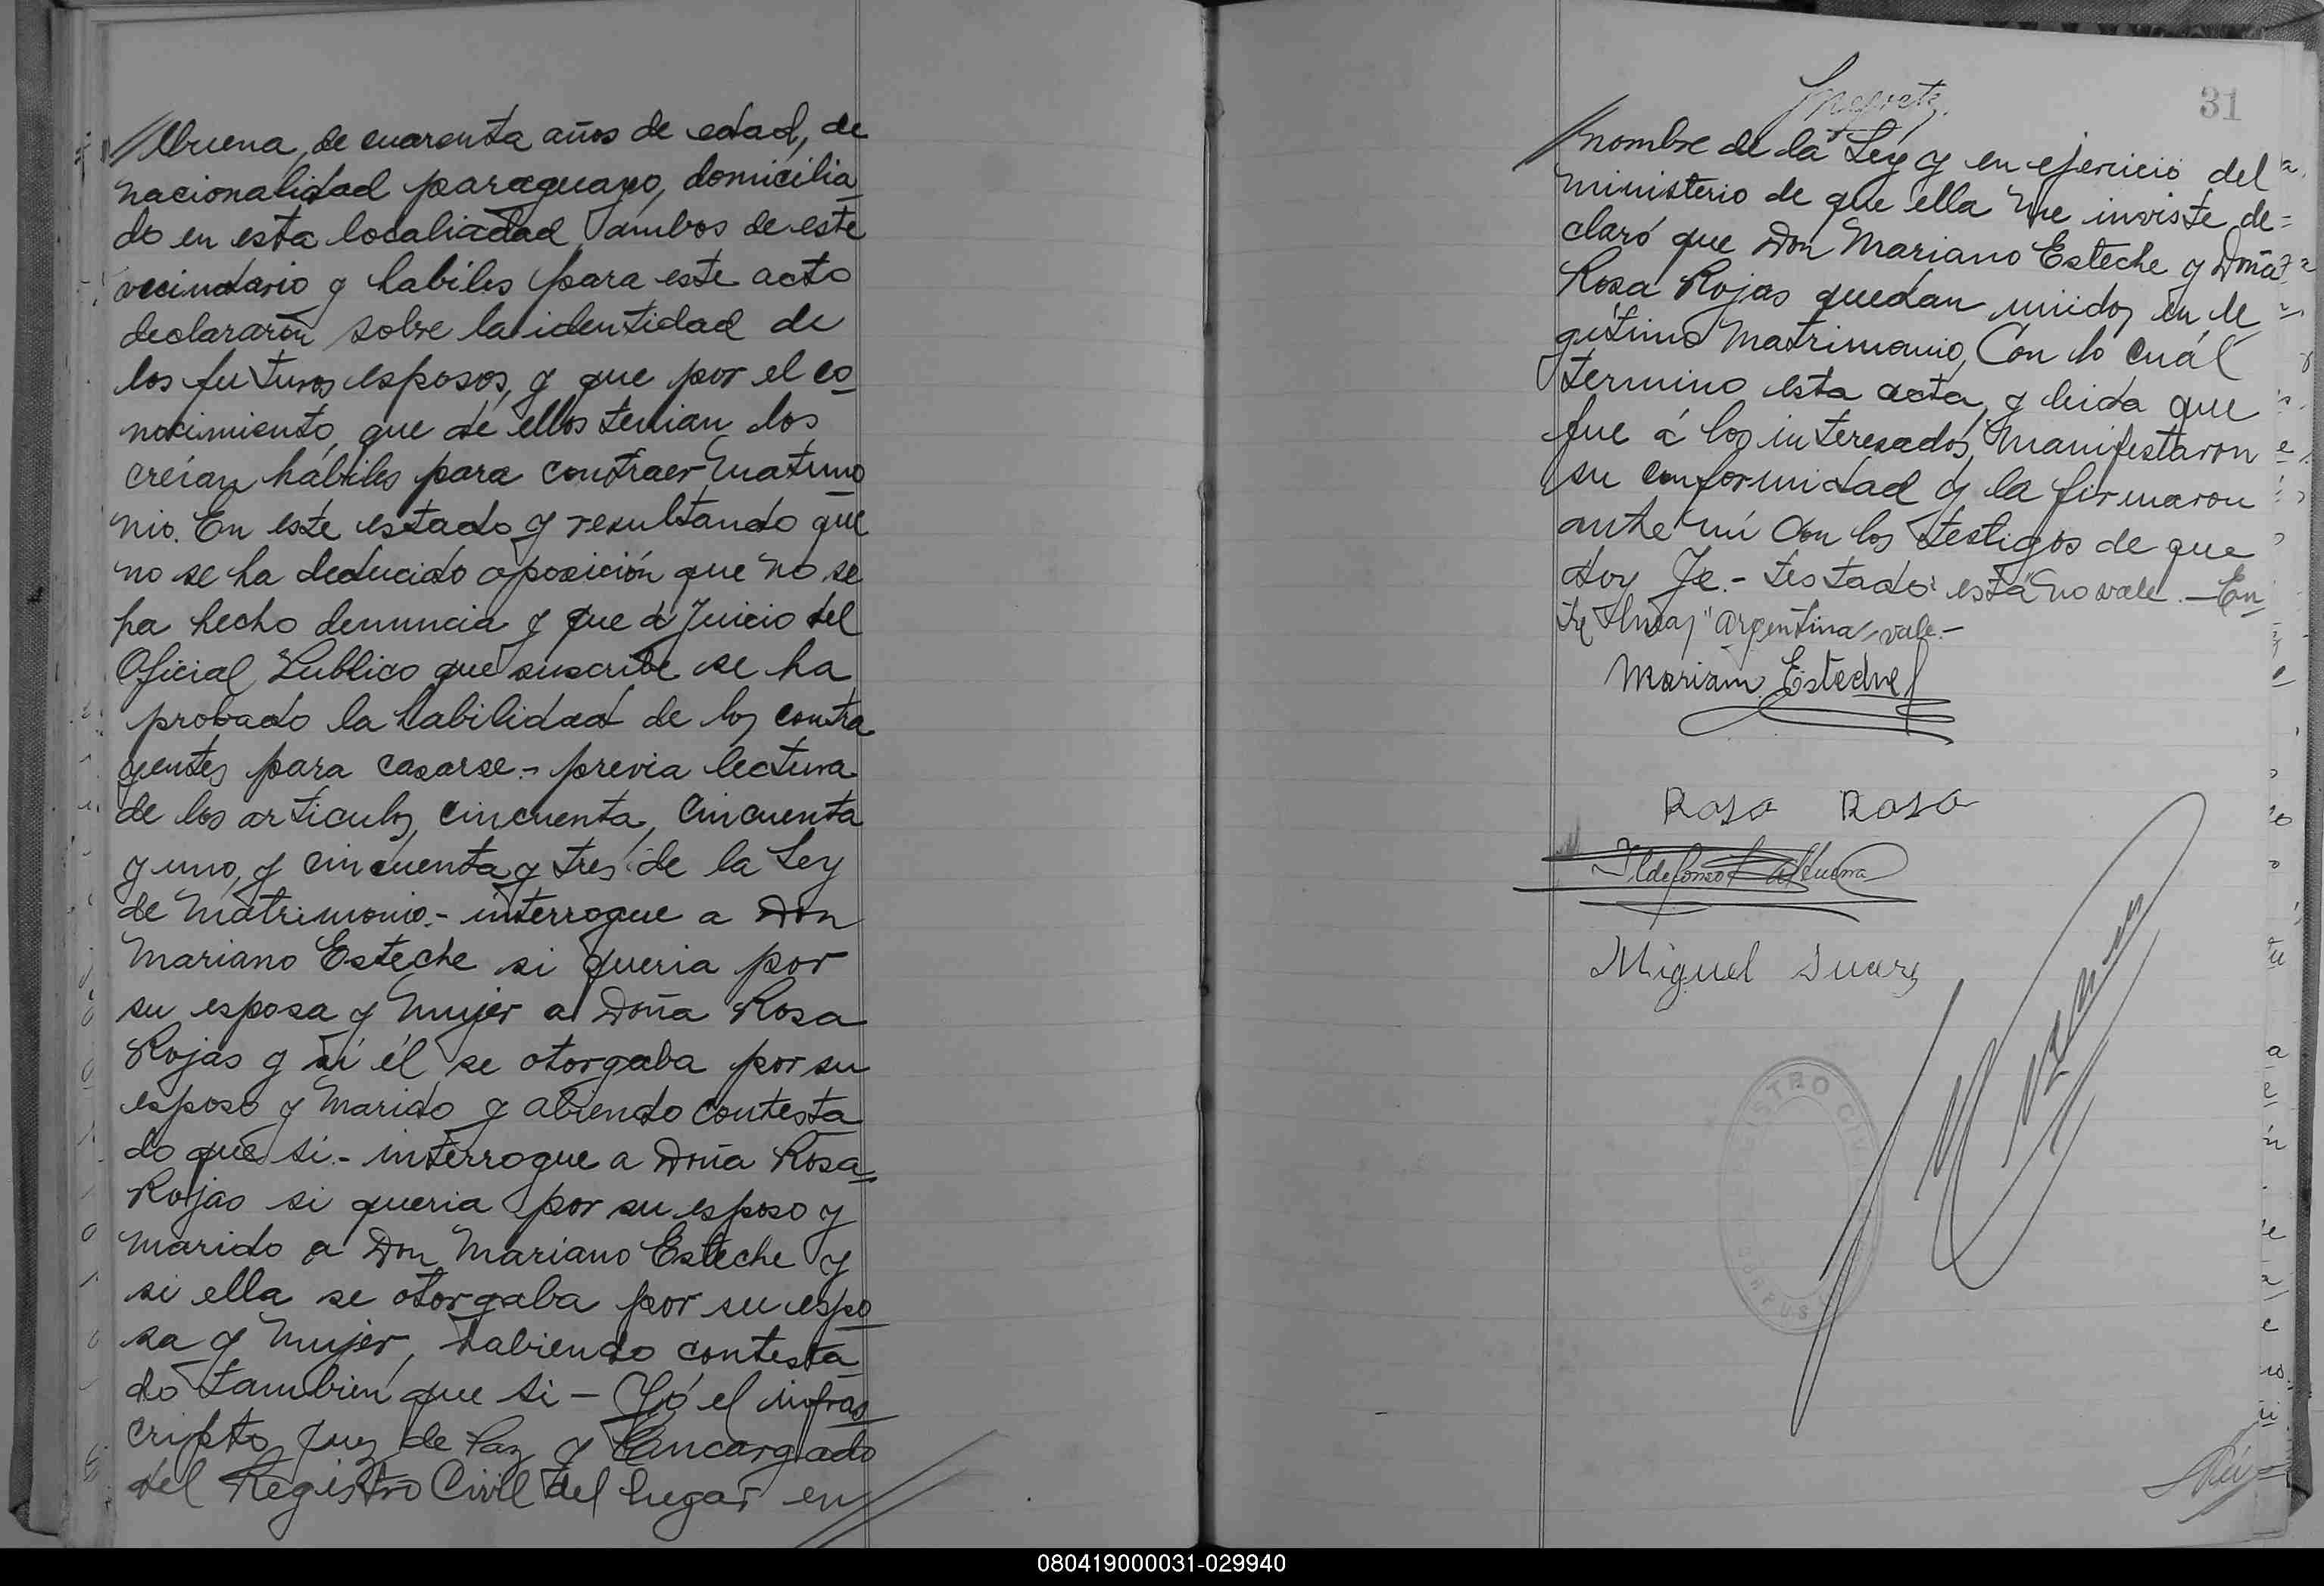 //lbuena, de cuarenta años de edad, de
nacionalidad paraguayo, domicilia
do en esta localiadad, ambos de este
vecindario y habiles para este acto
declararon sobre la identidad de
los futuros esposos, y que por el co
nocimiento, que de ellos tenian los
creían hábiles para contraer matrimo
nio. En este estado y resultando que
no se ha deducido oposición que no se
ha hecho denuncia y que a Juicio del
Oficial Publico que suscribe se ha
probado la habilidad de los contra
yentes para casarse.- previa lectura
de los articulos, cincuenta, cincuenta
y uno, y cincuenta y tres de la Ley
de Matrimonio.- interrogue a Don
Mariano Esteche si queria por
su esposa y Mujer a Doña Rosa
Rojas y si él se otorgaba por su
esposo y Marido y abiendo contesta
do que si.- interrogue a Doña Rosa
Rojas si queria por su esposo y
marido a Don Mariano Esteche y
si ella se otorgaba por su espo
sa y Mujer, habiendo contesta
do tambien que si - Yó el infras
cripto Juez de Paz y Encargado
del Registro Civil del lugar en//
31
//nombre de la Ley y en ejercicio del
ministerio de que ella me inviste de=
claró que Don Mariano Esteche y Doña
Rosa Rojas quedan unidos en le
gitimo Matrimonio, Con lo cuál
termino esta acta, y leida que
fue á los interesados, Manifestaron
su conformidad y la firmaron
ante mi con los testigos de que
doy Fe.- testado: esta "no vale.- En
tre lineas "argentina" vale.-
Mariano Esteche
Rosa Rosa
Ildefonso Albuena
Miguel Suarez
REGISTRO CIVIL
CORPUS
080419000031-029940